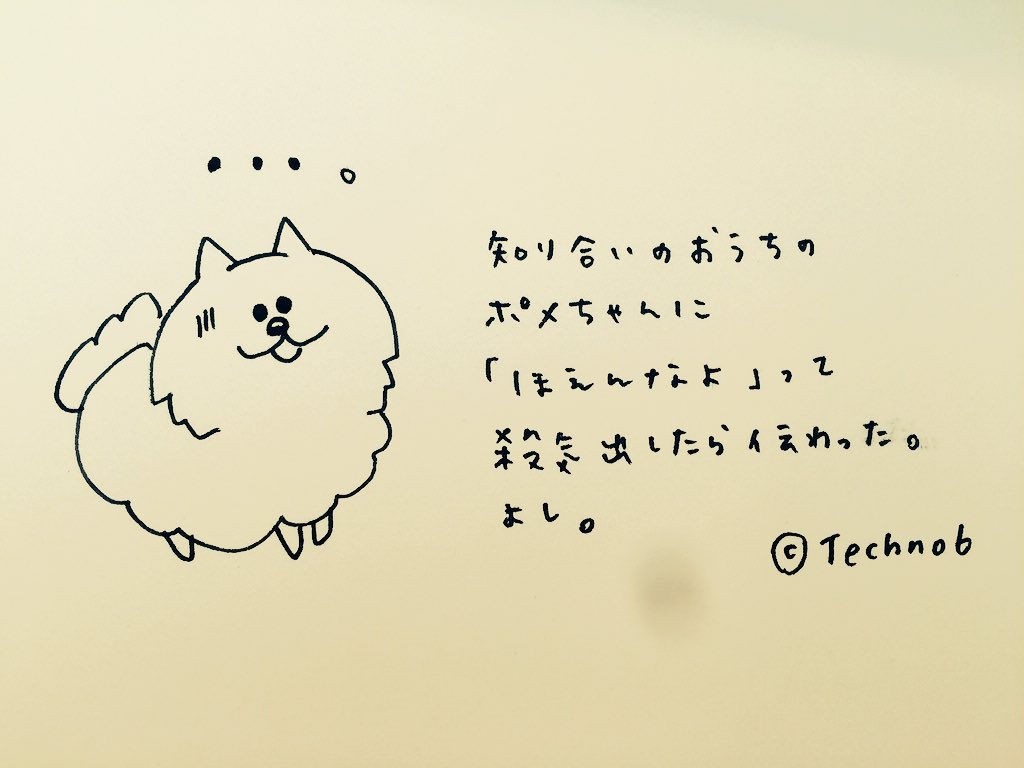 ・・・。
知り合いのおうちの
ポメちゃんに
「ほえんなよ」って
殺気出したら伝わった。
よし。
©Technob